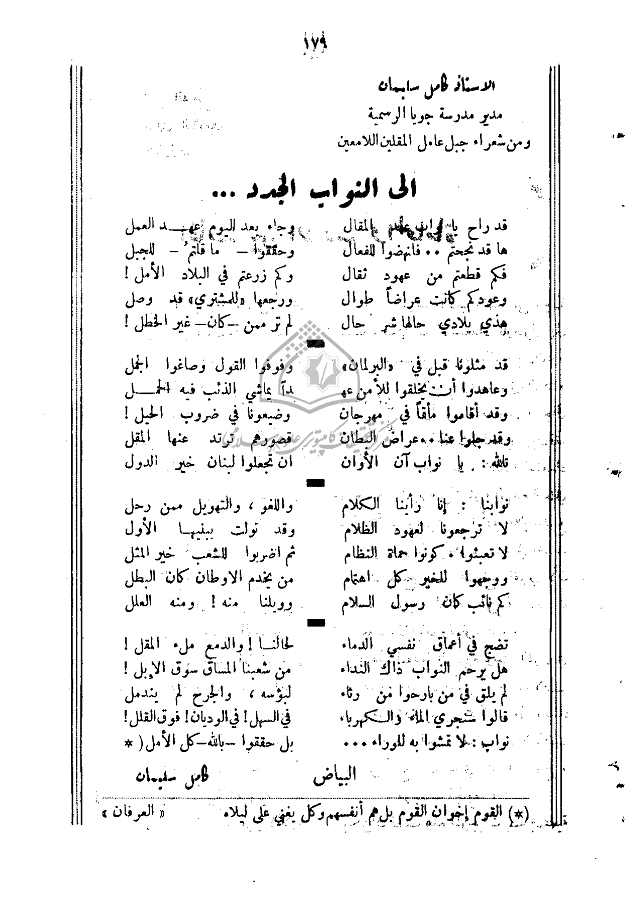 ١٧٩
الاستاذ كامل سليمان
مدير مدرسة جويا الرسمية
ومن شعراء جبل عامل المقلين اللامعين
الى النواب الجدد ...
قد راح يا نواب عهد المقال وجاء بعد اليوم عهد العمل
ها قد نجحتم .. فانهضوا للفعال وحققوا - ما فاتَ - للجبل
فكم قطعتم من عهود ثقال وكم زرعتم في البلاد الأمل !
وعودكم كانت عراضاً طوال ورجعها «للمشتري» قد وصل
هذي بلادي حالها شر حال لم تر ممن - كان - غير الخطل !
قد مثلونا قبل في «البرلمان» وفوفوا القول وصاغوا الجمل
وعاهدوا أن يخلقوا للأمن عهـ ـداً يماشي الذئب فيه الحمـل
وقد أقاموا مأقاً في مهرجان وضيعونا في ضروب الحيل !
وقد جلوا عنا .. عراض البطان قصورهم ترتد عنها المقل
تالله : يا نواب آن الأوان ان تجعلوا لبنان خير الدول
نوابنا : إنا رأينا الكلام واللغو ، والتهويل ممن رحل
لا ترجعونا لعهود الظلام وقد تولت ببنيها الأول
لا تعبثوا ، كونوا حماة النظام ثم اضربوا للشعب خير المثل
ووجهوا للخير كل اهتمام من يخدم الاوطان كان البطل
كم نائب كان رسول السلام وويلنا منه ! ومنه العلل
تضج في أعماق نفسي الدماء لحالنا ! والدمع ملء المقل !
هل يرحم النواب ذاك النداء من شعبنا المساق سوق الإبل !
لم يلق في من بارحوا من رثاء لبؤسه ، والجرح لم يندمل
قالوا سنجري الماء والكهرباء في السهل ! في الوديان ! فوق القلل !
نواب : لا تمشوا به للوراء ... بل حققوا - بالله - كل الأمل (*
البياض كامل سليمان
(*) القوم إخوان القوم بل هم أنفسهم وكل يغني على ليلاه « العرفان »